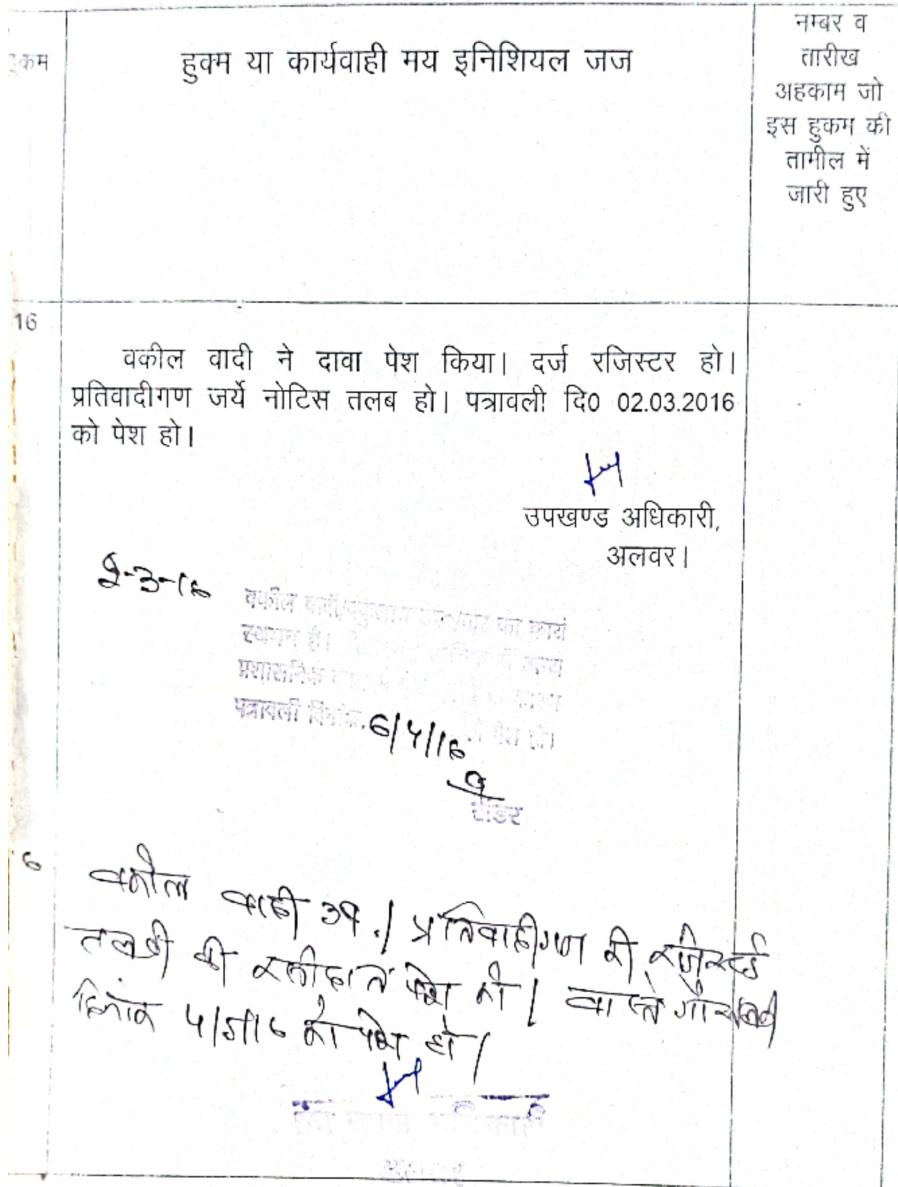 हुकम
हुक्म या कार्यवाही मय इनिशियल जज
नम्बर व
तारीख
अहकाम जो
इस हुकम की
तामील में
जारी हुए
16
वकील वादी ने दावा पेश किया। दर्ज रजिस्टर हो।
प्रतिवादीगण जर्ये नोटिस तलब हो। पत्रावली दि0 02.03.2016
को पेश हो।
उपखण्ड अधिकारी,
अलवर।
2-3-16
वकील का कार्य
स्थगन है। अन्य
प्रशासनिक
पत्रावली दिनांक 6/4/16 पेश हो।
रीडर
6
वकील वादी उप.। प्रतिवादीगण की रजिस्टर्ड
तलबी की रसीदात पेश की। वास्ते
दिनांक 4/5/16 को पेश हो।
उप खण्ड अधिकारी
अलवर